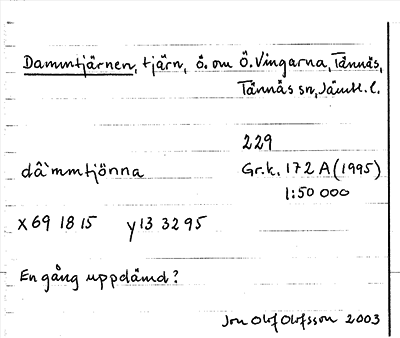 Dammtjärnen, tjärn, ö. om Ö. Vingarna, Tännäs,
Tännäs sn, Jämtl. l.
229
dâ`mmtjönna Gr.k. 172 A (1995)
1:50 000
x 69 18 15 y 13 32 95
En gång uppdämd?
Jon Olof Olofsson 2003